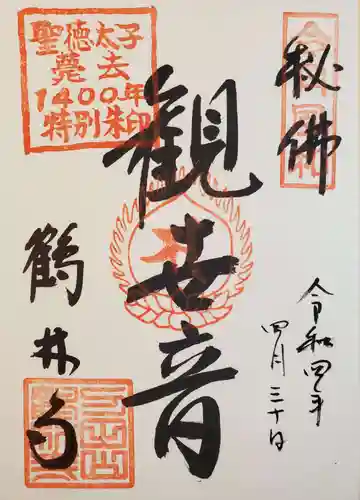 秘佛
令和四年
四月三十日
観世音
聖徳太子
薨去
1400年
特別朱印
鶴林寺